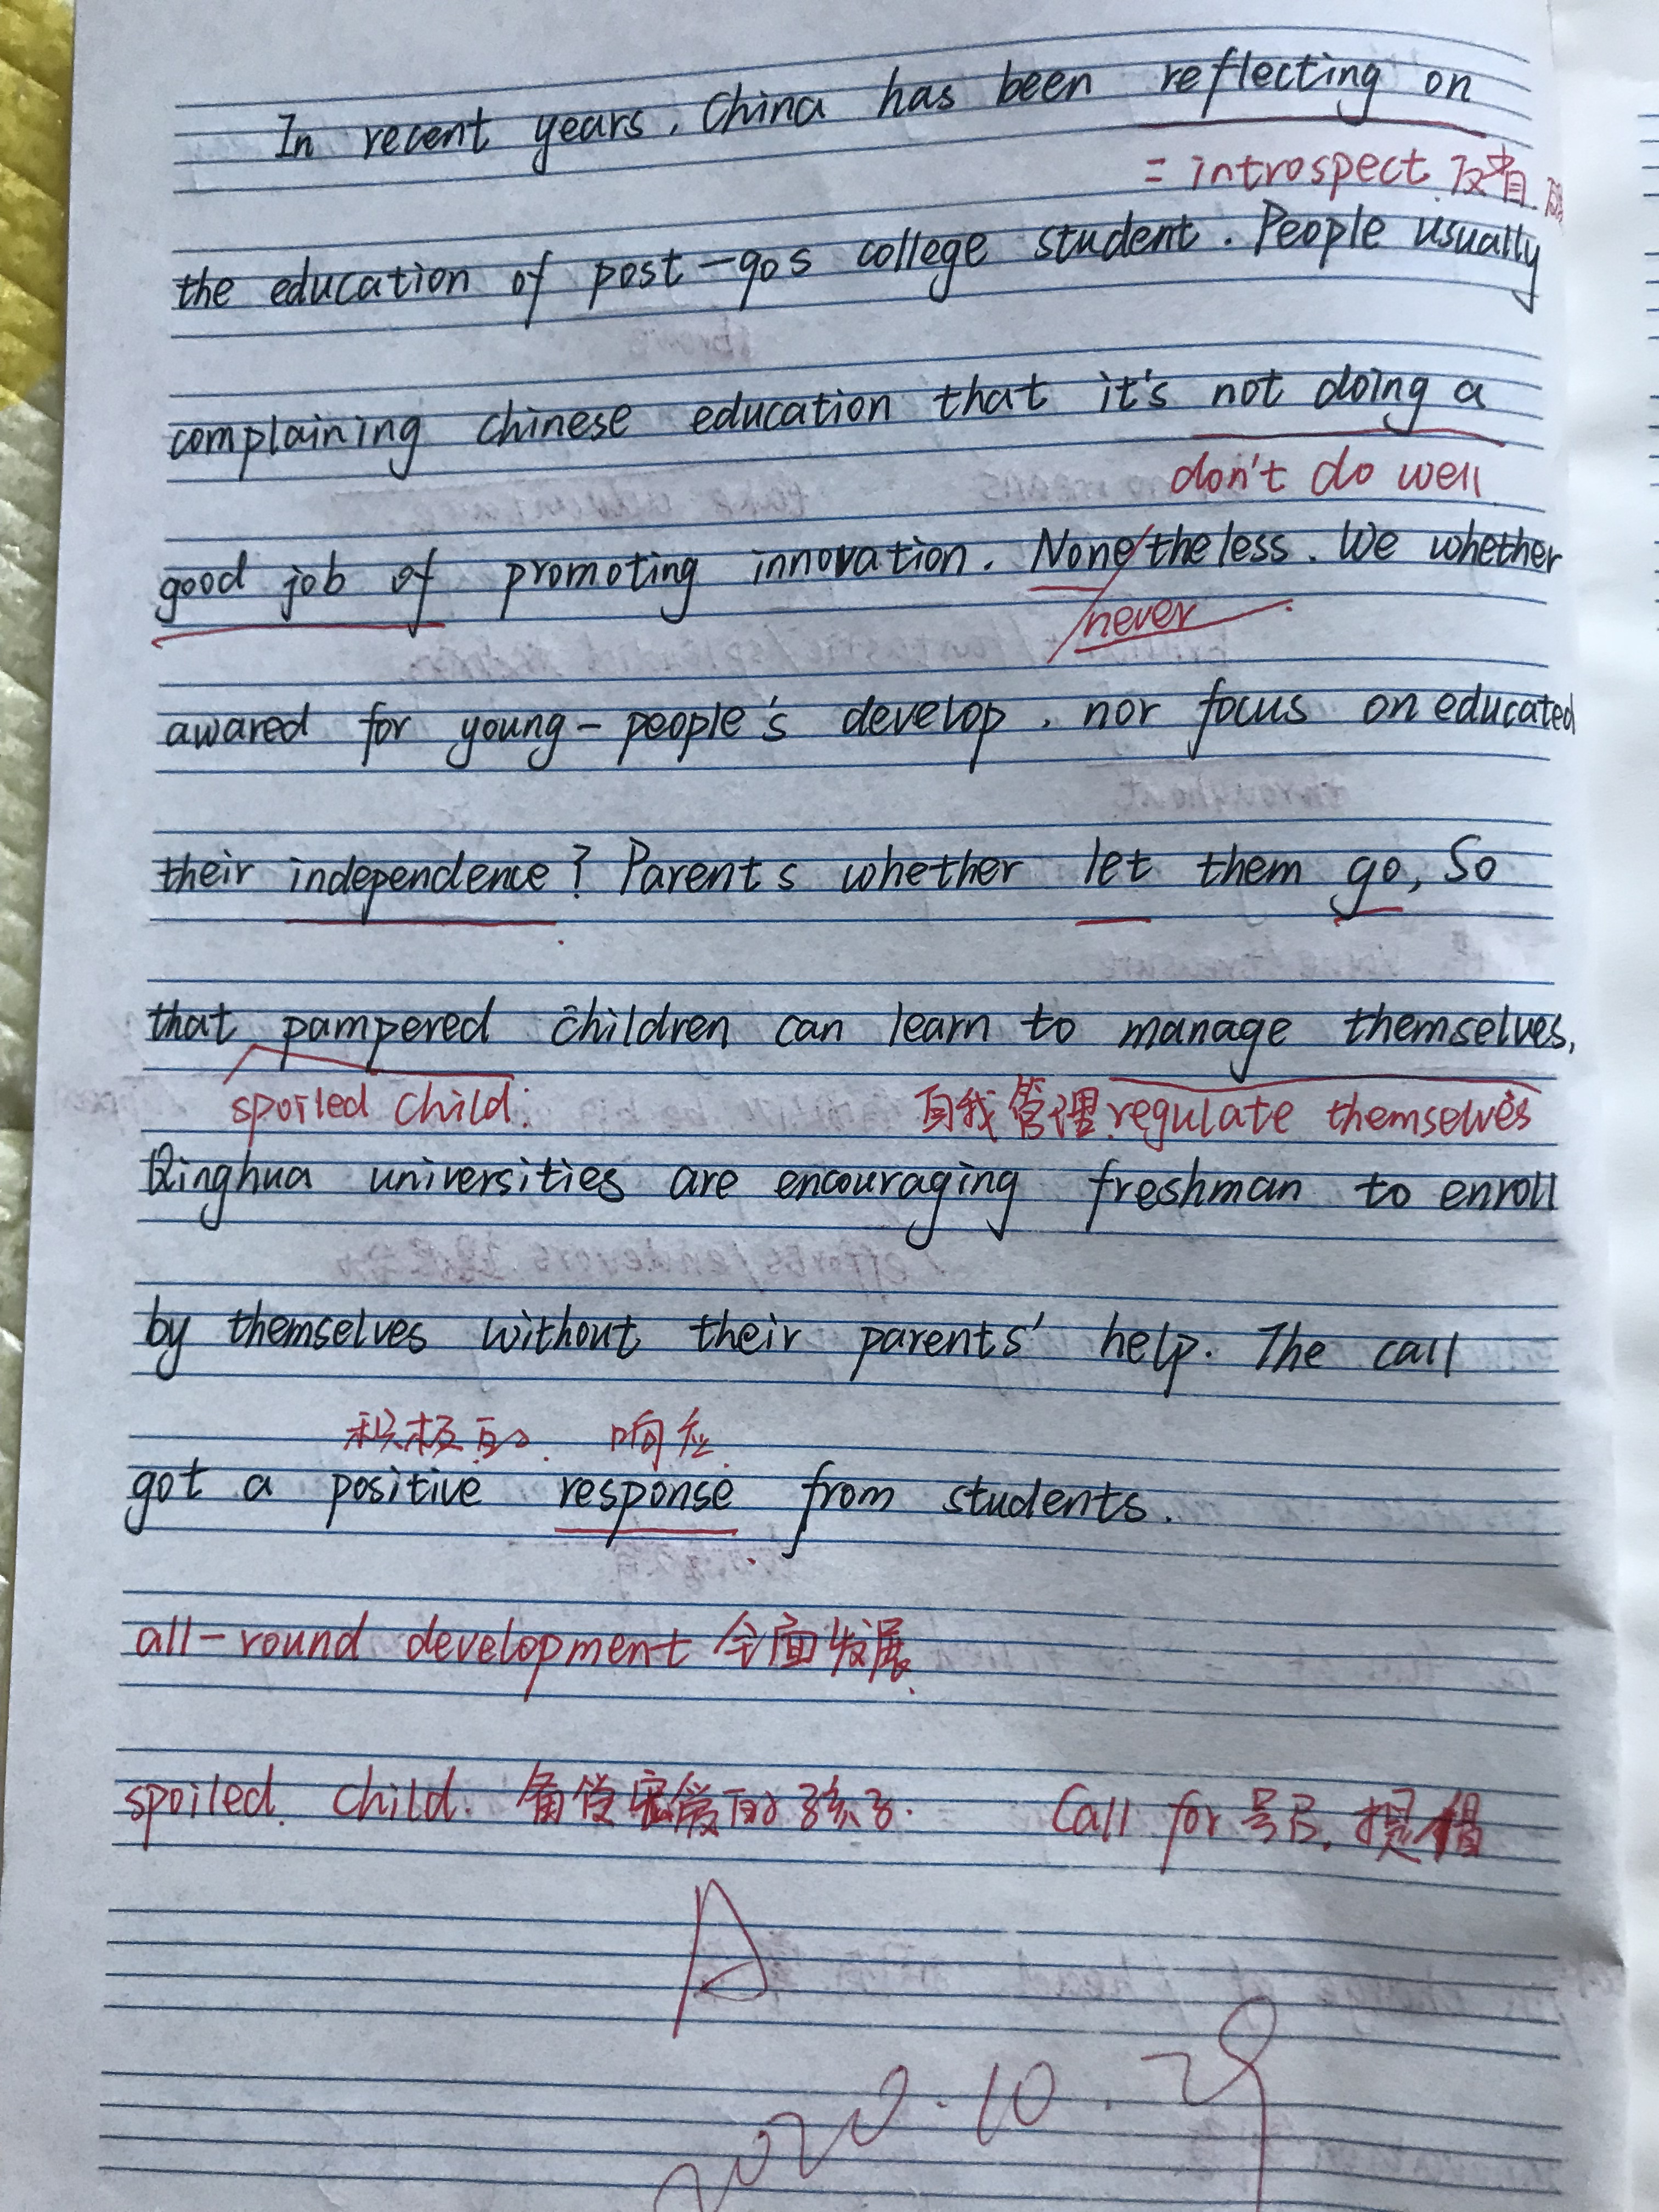 In recent years, China has been reflecting on
= introspect 反省.
the education of post-90s college student. People usually
complaining chinese education that it's not doing a
don't do well
good job of promoting innovation. Nonetheless. We whether
never
awared for young-people's develop, nor focus on educated
their independence? Parents whether let them go, So
that pampered children can learn to manage themselves,
spoiled child: 自我管理 regulate themselves
Qinghua universities are encouraging freshman to enroll
by themselves without their parents' help. The call
积极的. 响应.
got a positive response from students.
all-round development 全面发展.
spoiled child. 备受宠爱的孩子. Call for 号召, 提倡
A
2020.10.29